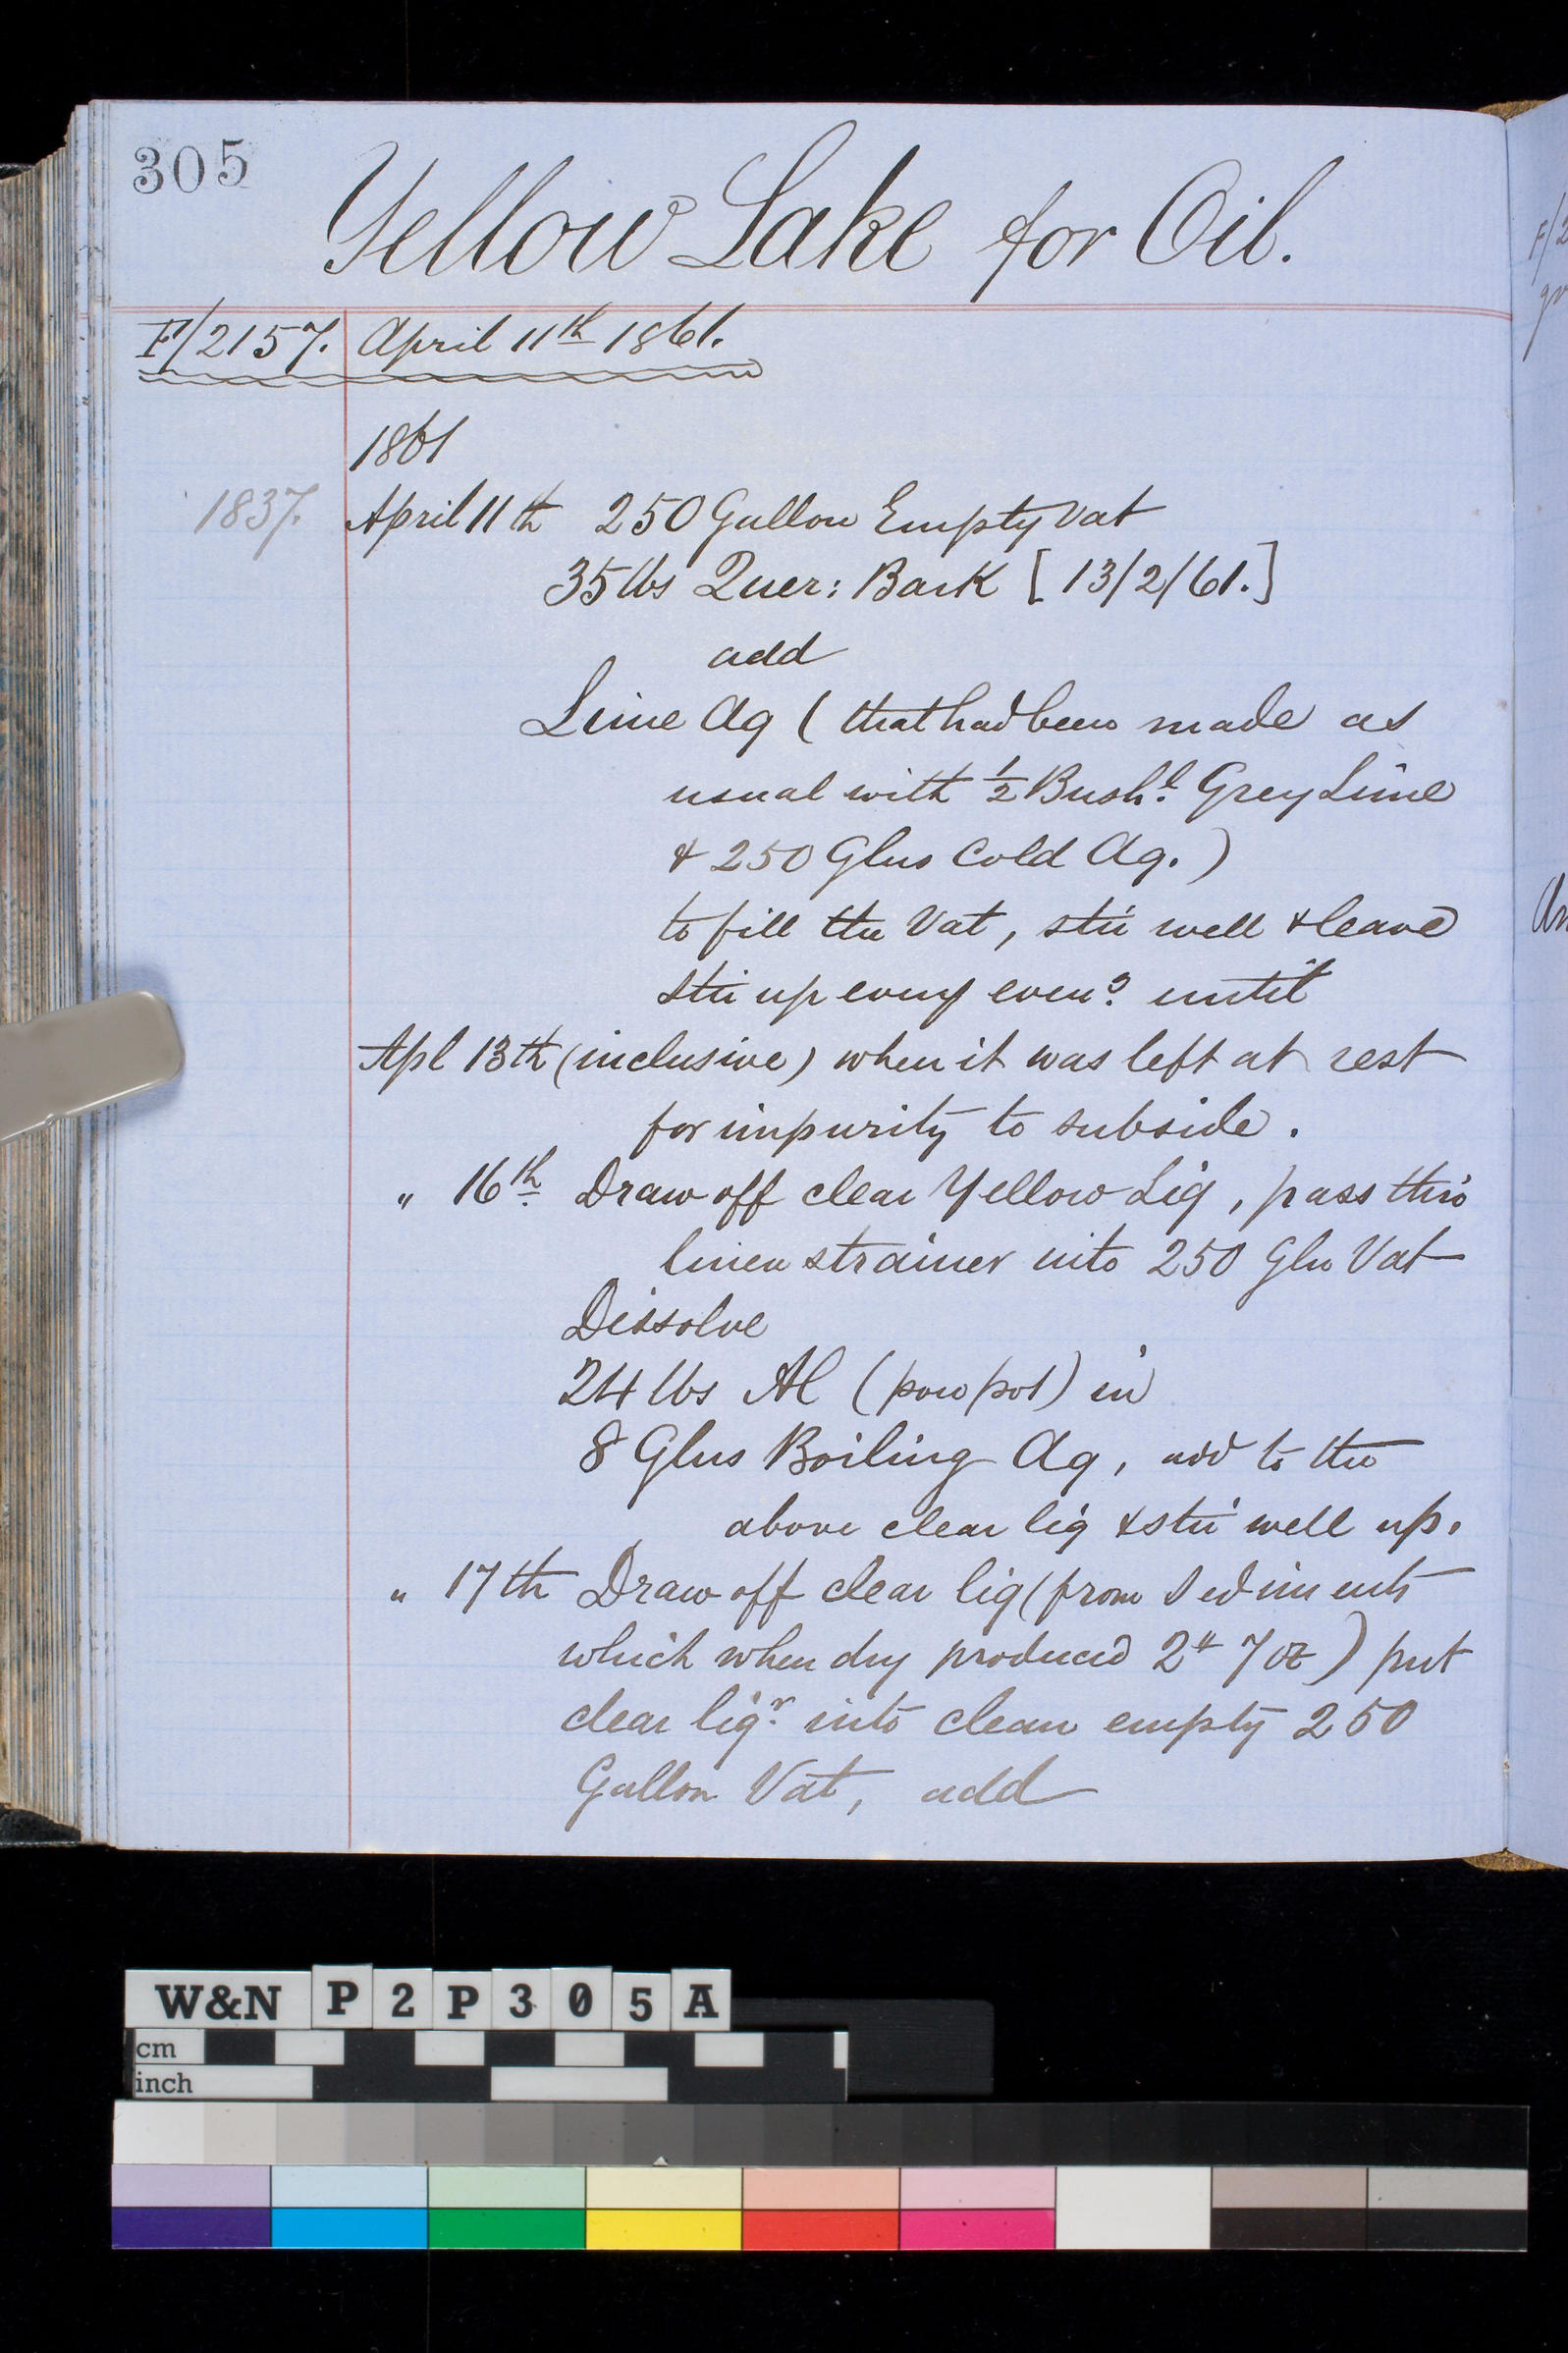 305
Yellow Lake for Oil.
F/2157. April 11th 1861.
1861
1837. April 11th 250 Gallon Empty Vat
35 lbs Quer: Bark [13/2/61.]
add
Lime Aq (that had been made as
usual with ½ Bushl. Grey Lime
& 250 Glns Cold Aq.)
to fill the Vat, stir well & leave
stir up every eveng. until
Apl 13th (inclusive) when it was left at rest
for impurity to subside.
" 16th Draw off clear Yellow Liq, pass thro
linen strainer into 250 Gln Vat
Dissolve
24 lbs Al (pow pot) in
8 Glns Boiling Aq, add to the
above clear liq & stir well up.
" 17th Draw off clear liq (from Sediments
which when dry produced 2# 7 oz) put
clear liqr. into clean empty 250
Gallon Vat, add
W&N P2P305A
cm
inch